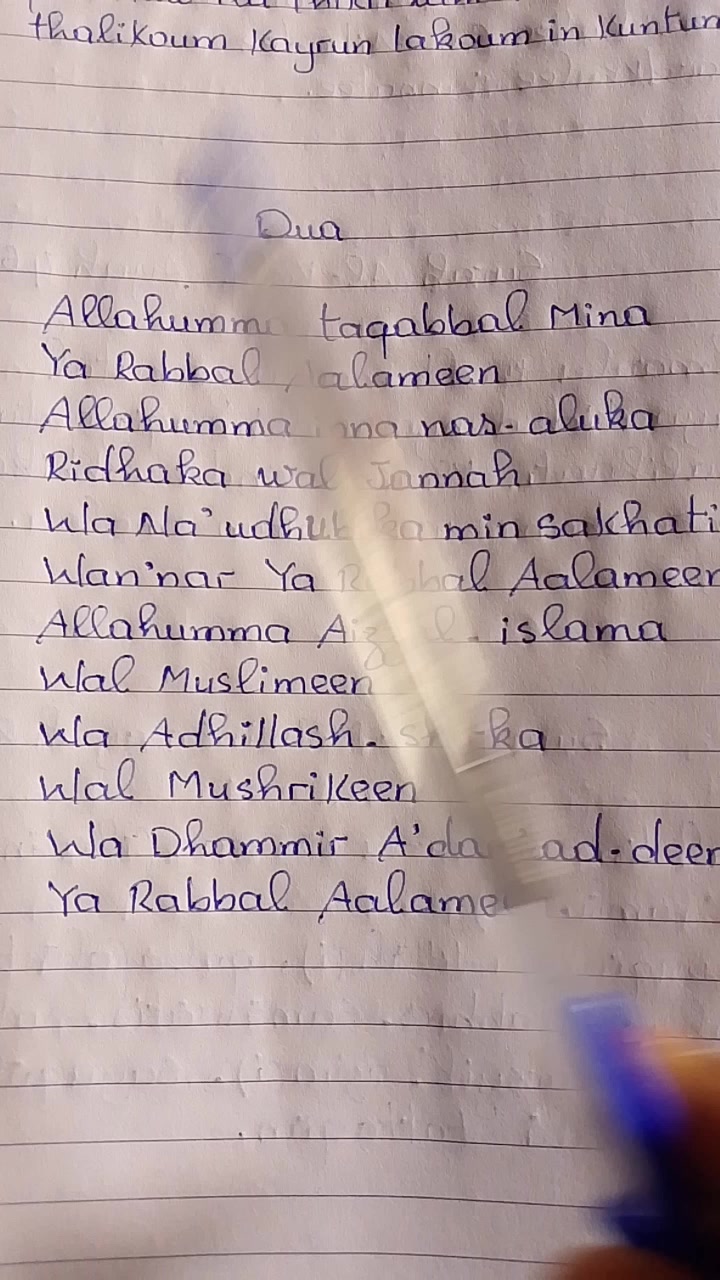 thalikoum Kayrun lakoum in Kuntun
Dua
Allahumma taqabbal Mina
Ya Rabbal alameen
Allahumma nas-aluka
Ridhaka wal Jannah
Wa Na'udhu min sakhati
Wan'nar Ya Rabbal Aalameen
Allahumma islama
Wal Muslimeen
Wa Adhillash-
Wal Mushrikeen
Wa Dhammir A'da ad-deen
Ya Rabbal Aalame